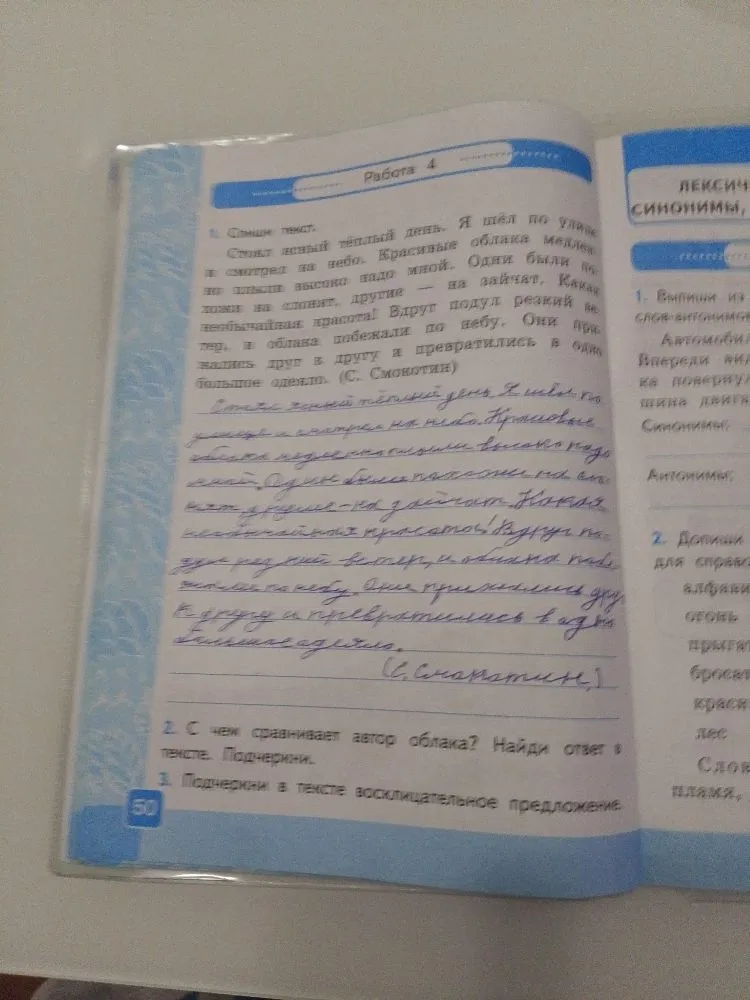 Работа 4
1. Спиши текст.
Стоял ясный тёплый день. Я шёл по улице
и смотрел на небо. Красивые облака медлен-
но плыли высоко надо мной. Одни были по-
хожи на слонят, другие — на зайчат. Какая
необычайная красота! Вдруг подул резкий ве-
тер, и облака побежали по небу. Они при-
жались друг к другу и превратились в одно
большое одеяло. (С. Смокотин)
Стоял ясный тёплый день. Я шёл по
улице и смотрел на небо. Красивые
облака медленно плыли высоко надо
мной. Одни были похожи на сло-
нят другие - на зайчат. Какая
необычайная красота! Вдруг по-
дул резкий ветер, и облака побе-
жали по небу. Они прижались друг
к другу и превратились в одно
большое одеяло.
(С. Смокотин.)
2. С чем сравнивает автор облака? Найди ответ в
тексте. Подчеркни.
3. Подчеркни в тексте восклицательное предложение.
50
ЛЕКСИЧ
СИНОНИМЫ,
1. Выпиши из
слов-антонимо
Автомобил
Впереди вид
ка повернул
шина двига
Синонимы:
Антонимы:
2. Допиши
для справо
алфави
огонь
прыгат
бросат
краси
лес
Слов
пламя,